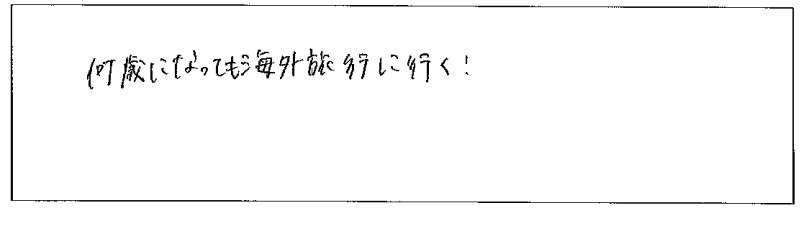 何歳になっても海外旅行に行く!